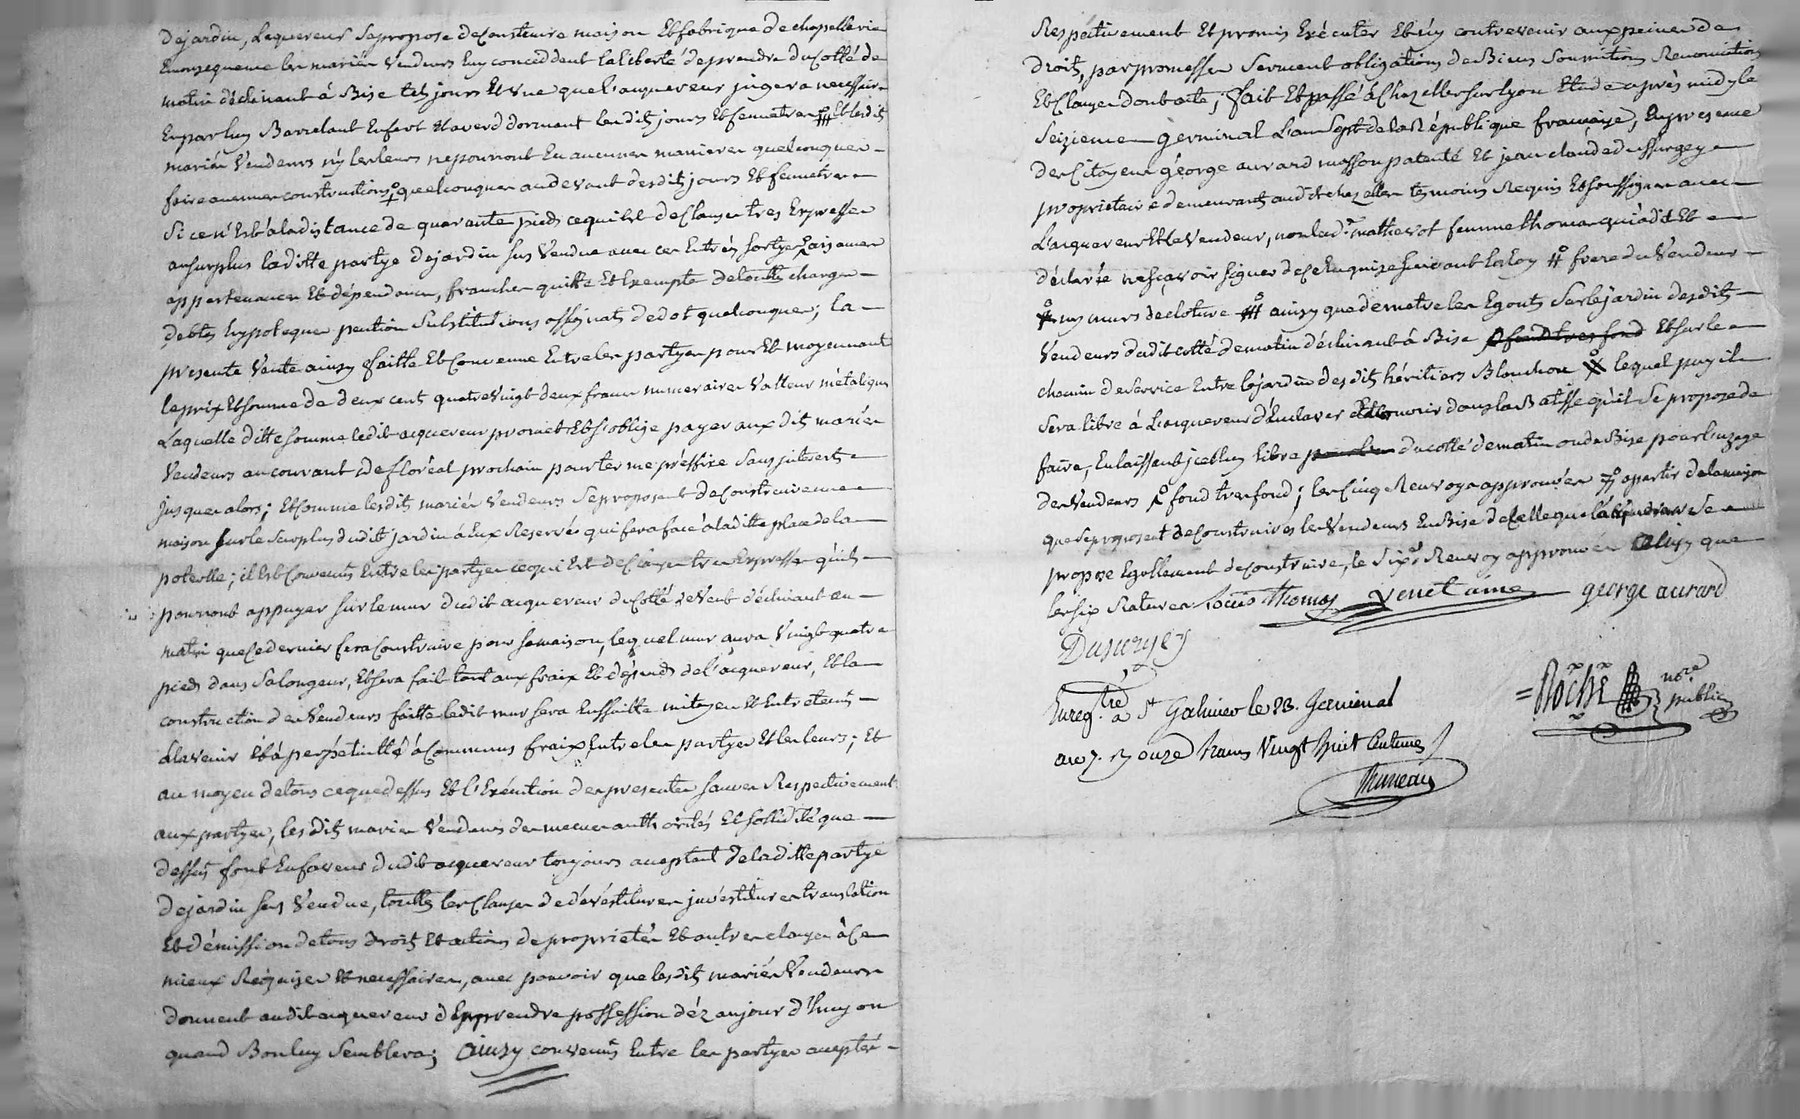 dejardin, Laquereur sepropose deConstruire maison Et fabrique de chapellerie
Enconsequence les mariés vendeurs luy conceddent la liberté deprendre du Cotté de
matin déclinant à Bise tels jours Et vue que l'acquereur jugera necessaire
En par luy Barrelant En fert Et averd dormant lesdits jours Et fenetres Et lesdits
mariés Vendeurs ny les leurs ne pourront En aucunes manieres quelconques
faire aucunes constructions quelconques au devant desdits jours Et fenetres
Si ce n'Est à la distance de quarante pieds ce qui Est de Clause tres Expresse
au surplus laditte partye dejardin sus Vendue avec ses Entrés sortyes aisances
appartenances Et dépendances, franches quitte Et Exempte de toutte charges
debtes hypoteque pention Substitutions assignats dedot quelconques; la
presente Vente ainsy faitte Et Convenue Entre les partyes pour Et moyennant
le prix Et somme de deux cent quatre Vingt deux francs numeraires Valleur métalique
Laquelle ditte somme ledit acquereur promet Et S'oblige payer aux dits mariés
Vendeurs au courant de floréal prochain pour terme préffixe Sans jnterets
jusques alors; Et Comme lesdits mariés Vendeurs Se proposent de Construire une
maison sur le Surplus dudit jardin à Eux Reservés qui fera face à laditte place de la
poterlle; il Est Convenus Entre les partyes ce qui Est de Clause tres Expresse qu'ils
pourront appuyer sur le mur dudit acquereur du Cotté de Vent déclinant au
matin que Ce dernier fera Construire pour sa maison, lequel mur aura Vingt quatre
pieds dans Sa longeur, Et sera fait tout aux fraix Et dépends de l'acquereur, Et la
construction des Vendeurs faitte ledit mur sera Ensuitte mitoyen Et Entretenus
à l'avenir Et à perpétuitté à Communs fraix Entre les partyes Et les leurs; Et
au moyen de tous ce que dessus Et l'Exécution des presentes sauves Respectivement
aux partyes, les dits mariés Vendeurs des mesmes authorités Et solliditté que
dessus font En faveur dudit acquereur toujours acceptant de laditte partye
dejardin sus Vendue, touttes les Clauses de dévéstitures jnvéstitures translation
Et démission de tous droits Et actions de proprietés Et autres clauses à Ce
mieux Requises Et necessaires, avec pouvoir que lesdits mariés Vendeurs
donnent audit acquereur d'En prendre possession déz aujourd'huy ou
quand Bon luy Semblera; ainsy convenus Entre les partyes accepté
Respéctivement Et promis Exécuter Et n'y contrevenir aux peines de
droits, par promesses Serment obligations de Biens Soumitions Renonciations
Et Clauses dont acte; fait Et passé à Chazelles sur Lyon Etude après midy le
Seizieme germinal L'an Sept de la République francaise, En presence
des Citoyens géorge aurard masson patenté Et jean claude dussurgey
propriétaire demeurants audit chazelles temoins Requis Et soussignés avec
L'acquereur Et le Vendeur, non lad.e mathevot femme thomas qui à dit Et
déclarée ne sçavoir Signer de ce Enquise suivant la loy # frere du Vendeur
ny murs de cloture # ainsy que de metre les Egouts Sur le jardin desdits
Vendeurs dudit cotté de matin déclinant à Bise Et sur le
chemin de service Entre le jardin desdits héritiers Blanchon lequel puy il
sera libre à L'acquereur d'Enclaver dans la Batisse qu'il Se propose de
faire, En laissant jcelluy libre du cotté de matin ou de Bise pour l'uzage
des Vendeurs fond tres fond; les Cinq Renvoys approuvés à partir de la maison
que se proposent de Construire les Vendeurs En Bise de Celle que l'acquereur Se
propose Egallement de construire, le Six.e Renvoy approuvés ainsy que
les six Ratures Louis Thomas venet ainé george aurard
Dusurgey
Roche no.re public
Enreg.tré à S.t Galmier le 23. Germinal
an 7. R onze francs Vingt huit Centimes